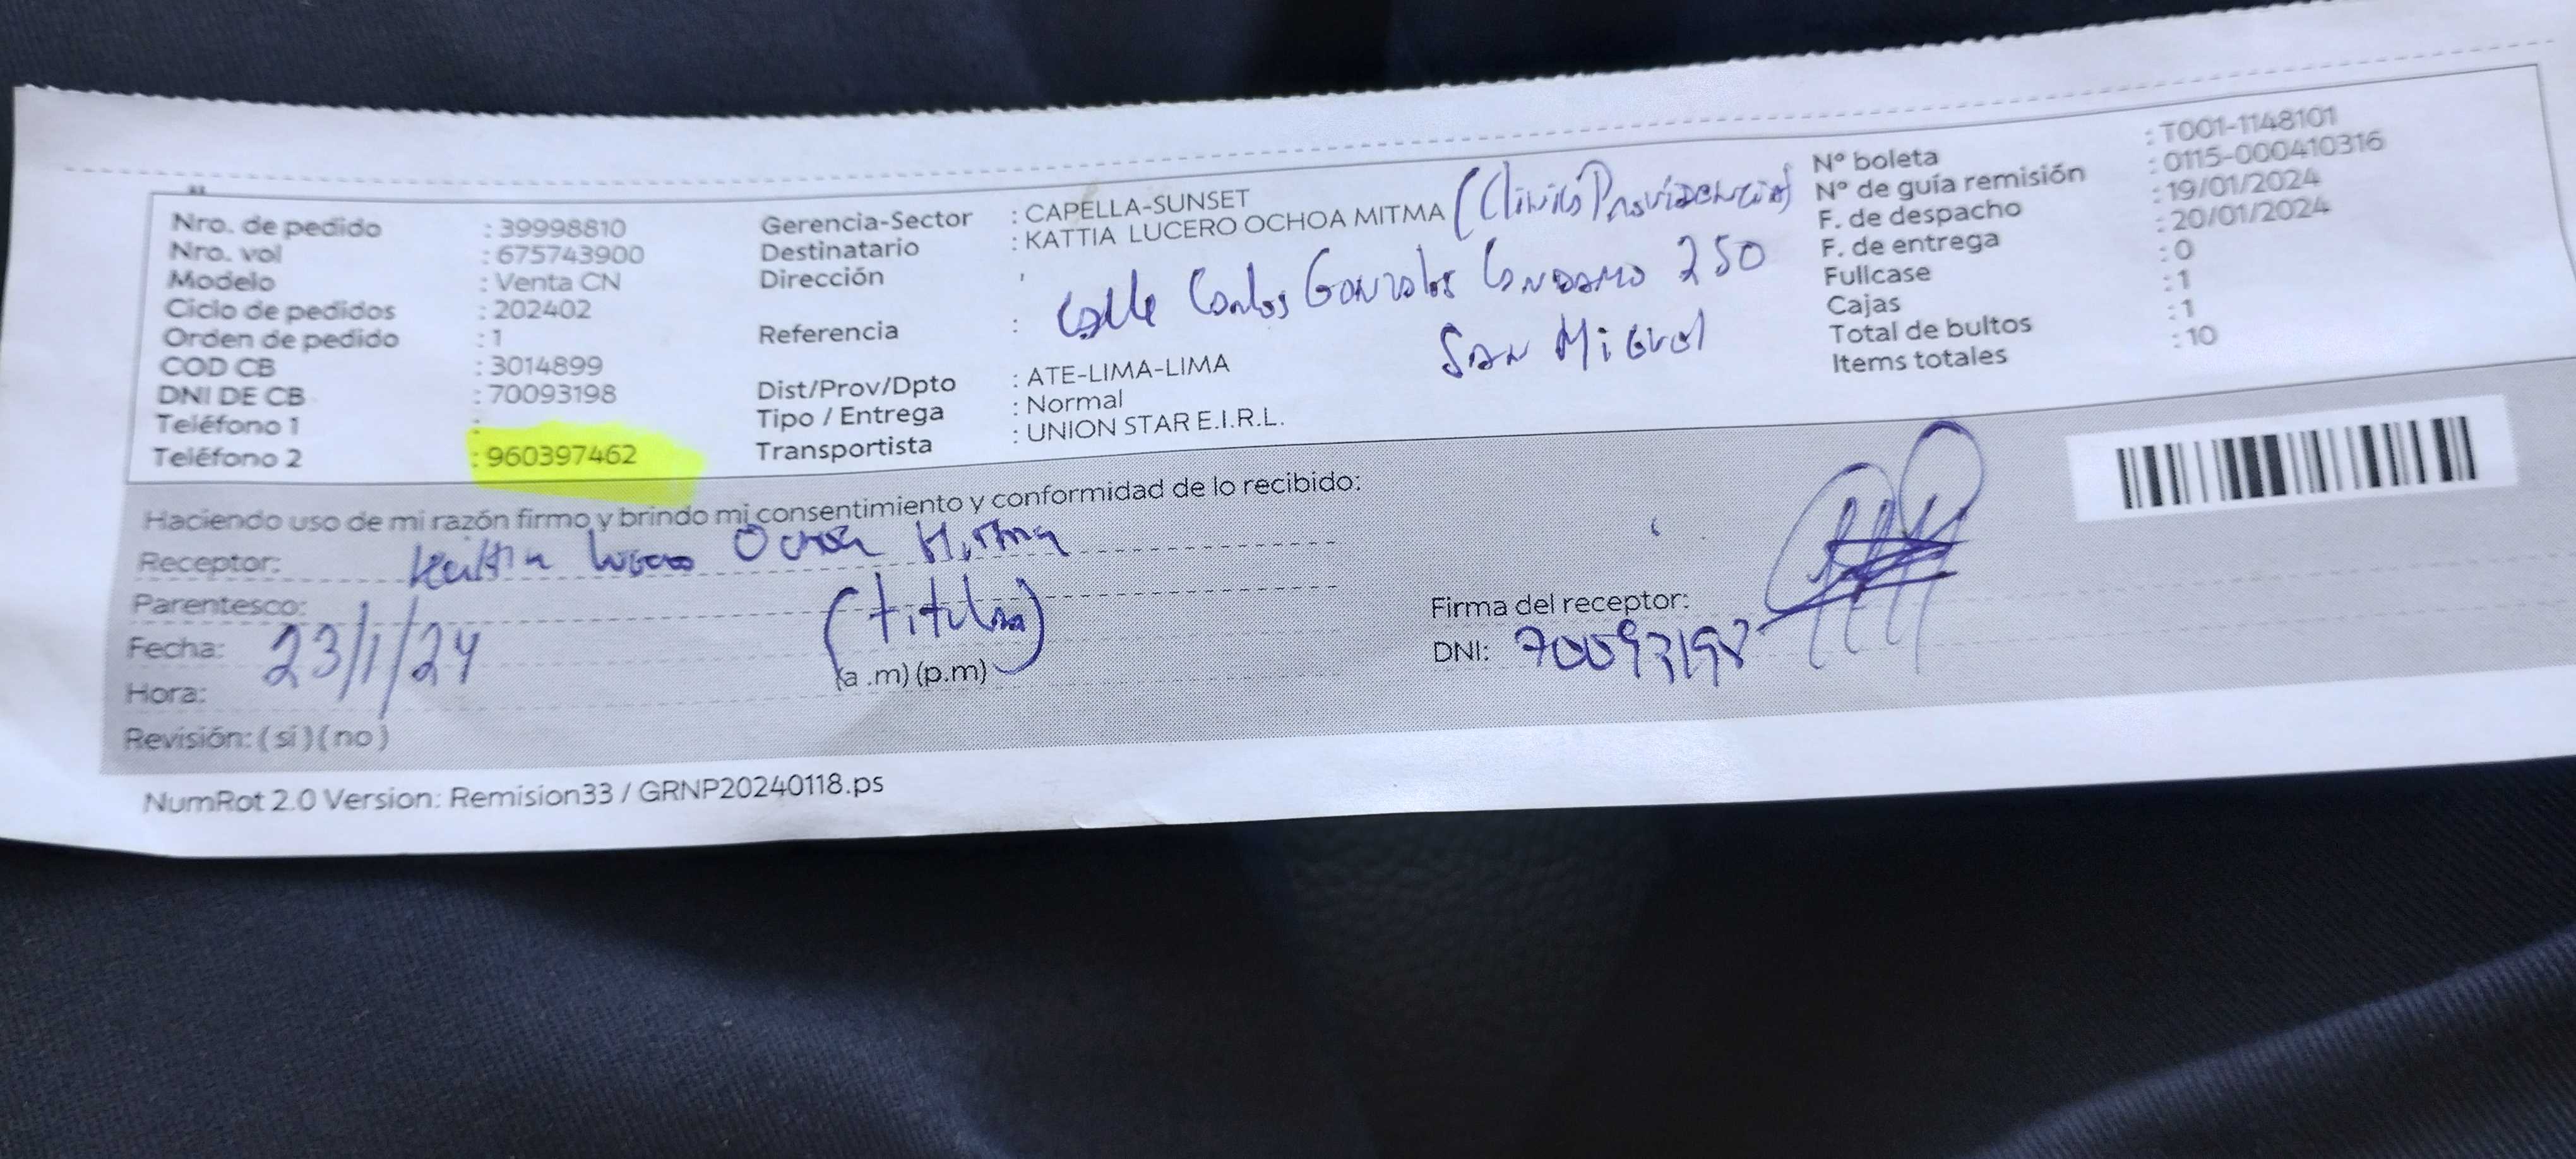 Nro. de pedido : 39998810
Nro. vol : 675743900
Modelo : Venta CN
Ciclo de pedidos : 202402
Orden de pedido : 1
COD CB : 3014899
DNI DE CB : 70093198
Teléfono 1 :
Teléfono 2 : 960397462
Gerencia-Sector : CAPELLA-SUNSET
Destinatario : KATTIA LUCERO OCHOA MITMA (Clinica Providencia)
Dirección
Calle Carlos Gonzales Candamo 250
Referencia :
San Miguel
Dist/Prov/Dpto : ATE-LIMA-LIMA
Tipo / Entrega : Normal
Transportista : UNION STAR E.I.R.L.
N° boleta : T001-1148101
N° de guía remisión : 0115-000410316
F. de despacho : 19/01/2024
F. de entrega : 20/01/2024
Fullcase : 0
Cajas : 1
Total de bultos : 1
Items totales : 10
Haciendo uso de mi razón firmo y brindo mi consentimiento y conformidad de lo recibido:
Receptor: Kattia Lucero Ochoa Mitma
Parentesco: (titular)
Fecha: 23/1/24
Hora: (a .m) (p.m)
Revisión: ( sí ) ( no )
Firma del receptor:
DNI: 70093198
NumRot 2.0 Version: Remision33 / GRNP20240118.ps